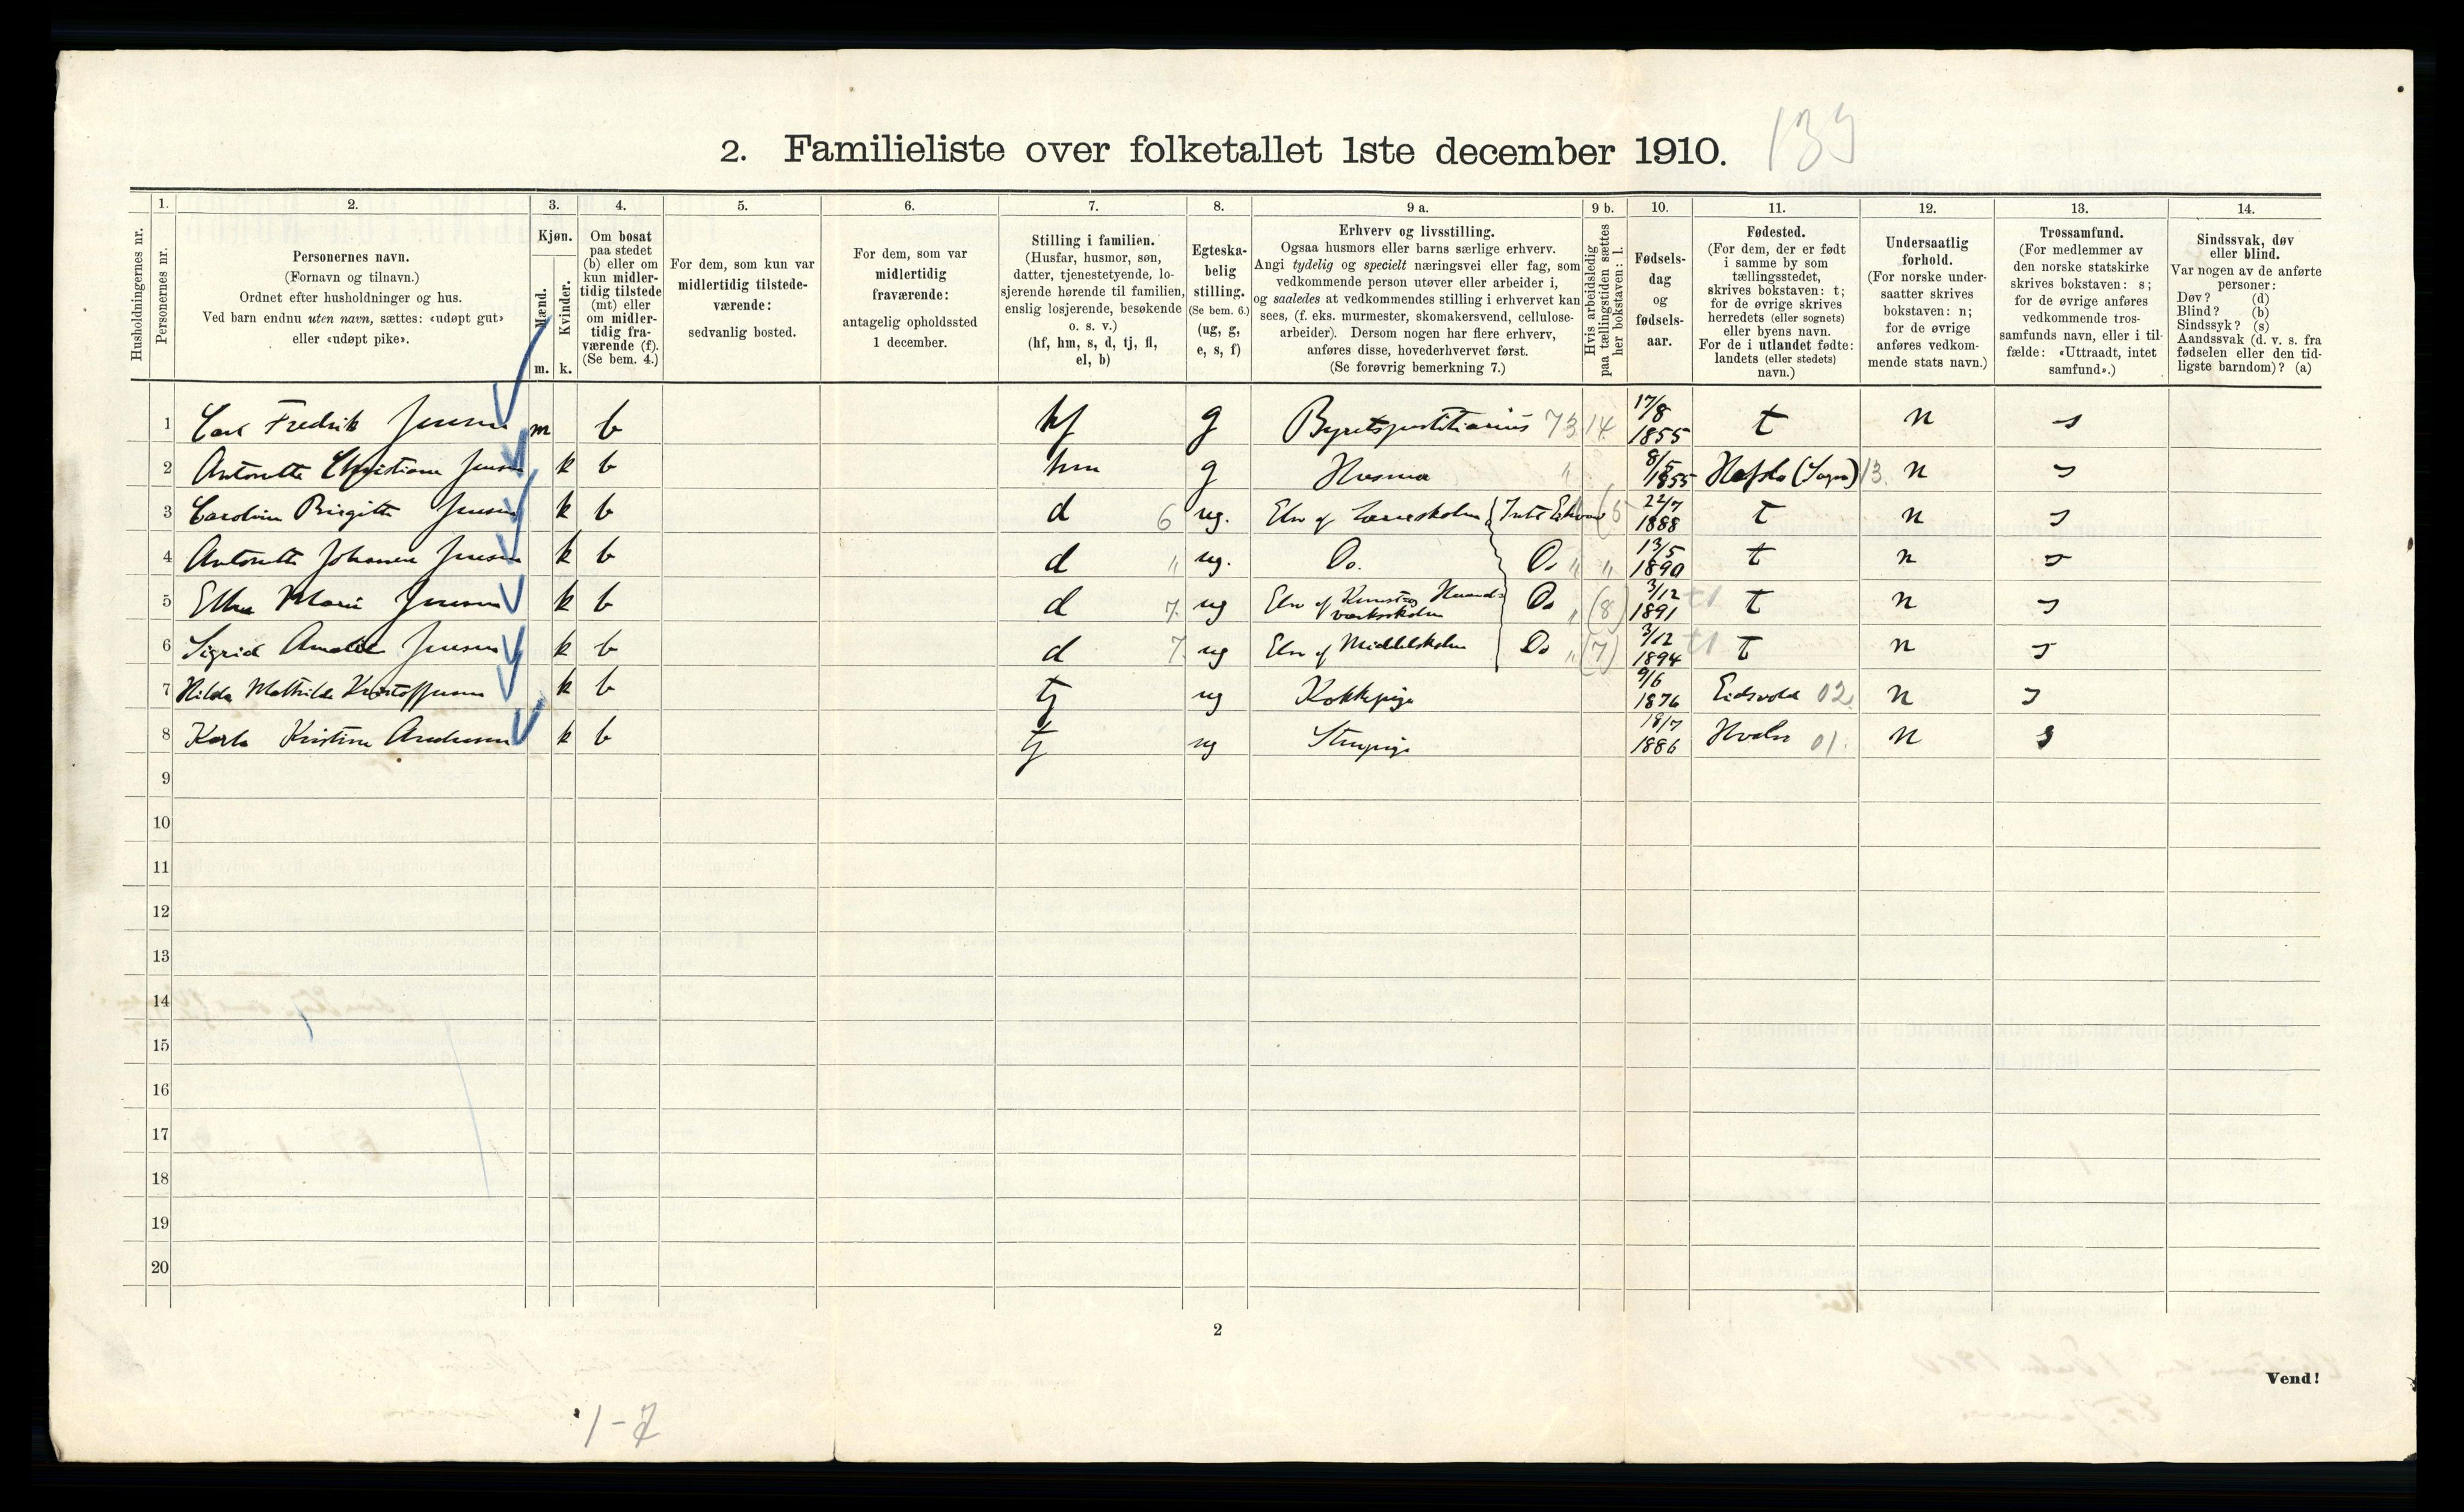 2. Familieliste over folketallet 1ste december 1910. 133
Husholdningernes nr.
1.
Personernes nr.
2.
Personernes navn.
(Fornavn og tilnavn.)
Ordnet efter husholdninger og hus.
Ved barn endnu uten navn, sættes: «udøpt gut»
eller «udøpt pike».
3.
Kjøn.
Mænd. Kvinder.
m. k.
4.
Om bosat
paa stedet
(b) eller om
kun midler-
tidig tilstede
(mt) eller
om midler-
tidig fra-
værende (f).
(Se bem. 4.)
5.
For dem, som kun var
midlertidig tilstede-
værende:
sedvanlig bosted.
6.
For dem, som var
midlertidig
fraværende:
antagelig opholdssted
1 december.
7.
Stilling i familien.
(Husfar, husmor, søn,
datter, tjenestetyende, lo-
sjerende hørende til familien,
enslig losjerende, besøkende
o. s. v.)
(hf, hm, s, d, tj, fl,
el, b)
8.
Egteska-
belig
stilling.
(Se bem. 6.)
(ug, g,
e, s, f)
9 a.
Erhverv og livsstilling.
Ogsaa husmors eller barns særlige erhverv.
Angi tydelig og specielt næringsvei eller fag, som
vedkommende person utøver eller arbeider i,
og saaledes at vedkommendes stilling i erhvervet kan
sees, (f. eks. murmester, skomakersvend, cellulose-
arbeider). Dersom nogen har flere erhverv,
anføres disse, hovederhvervet først.
(Se forøvrig bemerkning 7.)
9 b.
Hvis arbeidsledig
paa tællingstiden sættes
her bokstaven: l.
10.
Fødsels-
dag
og
fødsels-
aar.
11.
Fødested.
(For dem, der er født
i samme by som
tællingsstedet,
skrives bokstaven: t;
for de øvrige skrives
herredets (eller sognets)
eller byens navn.
For de i utlandet fødte:
landets (eller stedets)
navn.)
12.
Undersaatlig
forhold.
(For norske under-
saatter skrives
bokstaven: n;
for de øvrige
anføres vedkom-
mende stats navn.)
13.
Trossamfund.
(For medlemmer av
den norske statskirke
skrives bokstaven: s;
for de øvrige anføres
vedkommende tros-
samfunds navn, eller i til-
fælde: «Uttraadt, intet
samfund».)
14.
Sindssvak, døv
eller blind.
Var nogen av de anførte
personer:
Døv? (d)
Blind? (b)
Sindssyk? (s)
Aandssvak (d. v. s. fra
fødselen eller den tid-
ligste barndom)? (a)
1 Carl Fredrik Jensen m b hf g Byretsjustitiarius 73 14 17/8 1855 t n s
2 Antonette Christiane Jensen k b hm g Husmor " 8/5 1855 Hafslo (Sogn) 13. n s
3 Caroline Birgitte Jensen k b d 6 ug. Elev af Lærerskolen Intet Erhverv (5 22/7 1888 t n s
4 Antonette Johanne Jensen k b d " ug. Do. Do " " 13/5 1890 t n s
5 Marie Jensen k b d 7. ug Elev af Kunst og Haand- værksskolen Do " (8) 3/12 1891 t n s
6 Sigrid Amalie Jensen k b d 7. ug Elev af Middelskolen Do " (7) 3/12 1894 t n s
7 Hilda Mathilde Kristoffersen k b tj ug Kokkepige 9/6 1876 Eidsvold 02. n s
8 Karla Kristine Andersen k b tj ug Stuepige 18/7 1886 Hvaler 01. n s
9
10
11
12
13
14
15
16
17
18
19
20
2
Vend!
1-7